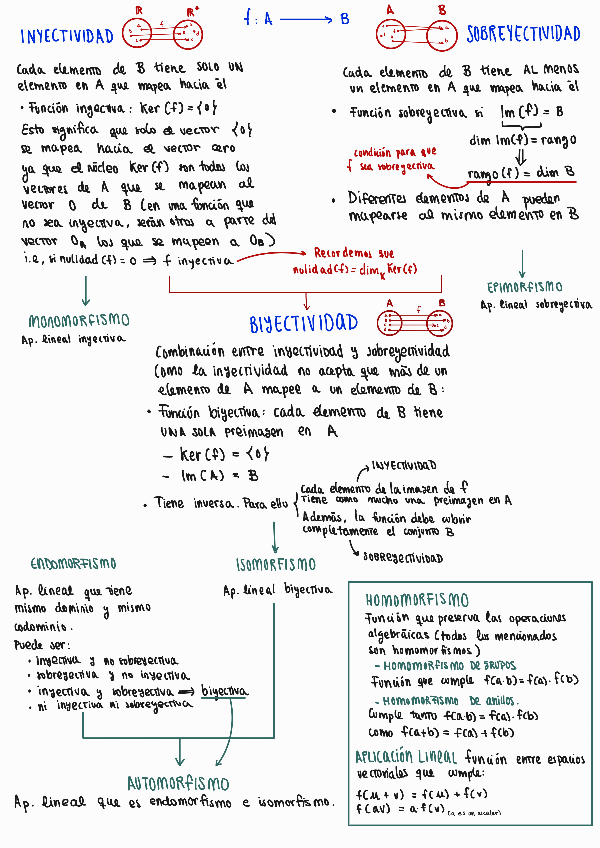 f: A → B
INYECTIVIDAD
R R+
Cada elemento de B tiene SOLO UN
elemento en A que mapea hacia él
• Función inyectiva: Ker(f) = {0}
Esto significa que solo el vector {0}
se mapea hacia el vector cero
ya que el núcleo Ker(f) son todos los
vectores de A que se mapean al
vector 0 de B (en una función que
no sea inyectiva, serán otros a parte del
vector 0A los que se mapeen a 0B)
i.e, si nulidad(f) = 0 ⟹ f inyectiva
Recordemos que
nulidad(f) = dimK Ker(f)
MONOMORFISMO
Ap. lineal inyectiva
A B
SOBREYECTIVIDAD
Cada elemento de B tiene AL MENOS
un elemento en A que mapea hacia él
• Función sobreyectiva si Im(f) = B
dim Im(f) = rango
⇓
rango(f) = dim B
condición para que
f sea sobreyectiva
• Diferentes elementos de A pueden
mapearse al mismo elemento en B
EPIMORFISMO
Ap. lineal sobreyectiva
BIYECTIVIDAD
A f B
Combinación entre inyectividad y sobreyectividad
Como la inyectividad no acepta que más de un
elemento de A mapee a un elemento de B:
• Función biyectiva: cada elemento de B tiene
UNA SOLA preimagen en A
– Ker(f) = {0}
– Im(A) = B
• Tiene inversa. Para ello {
INYECTIVIDAD
Cada elemento de la imagen de f
tiene como mucho una preimagen en A
Además, la función debe cubrir
completamente el conjunto B
SOBREYECTIVIDAD
ENDOMORFISMO
Ap. lineal que tiene
mismo dominio y mismo
codominio.
Puede ser:
• inyectiva y no sobreyectiva
• sobreyectiva y no inyectiva
• inyectiva y sobreyectiva ⟹ biyectiva
• ni inyectiva ni sobreyectiva
ISOMORFISMO
Ap. lineal biyectiva
AUTOMORFISMO
Ap. lineal que es endomorfismo e isomorfismo.
HOMOMORFISMO
Función que preserva las operaciones
algebráicas (todos los mencionados
son homomorfismos)
– HOMOMORFISMO DE GRUPOS
Función que cumple f(a·b) = f(a)·f(b)
– HOMOMORFISMO DE anillos.
Cumple tanto f(a·b) = f(a)·f(b)
como f(a+b) = f(a) + f(b)
APLICACIÓN LINEAL función entre espacios
vectoriales que cumple:
f(u + v) = f(u) + f(v)
f(av) = a·f(v) (a es un escalar)